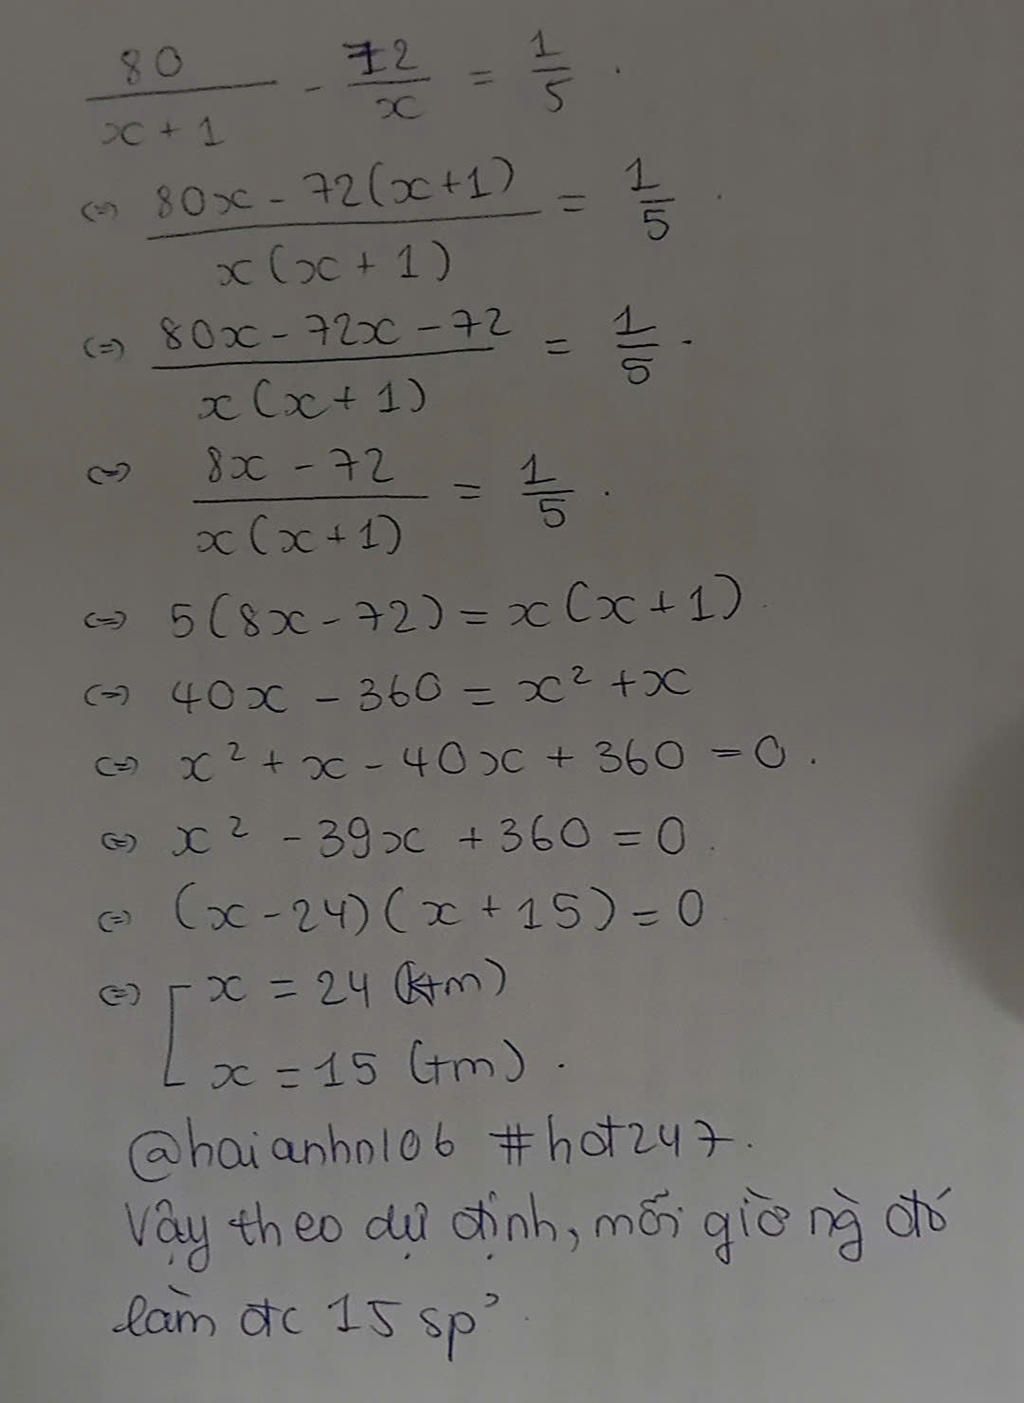 80/(x+1) - 72/x = 1/5.
(=) (80x - 72(x+1))/(x(x+1)) = 1/5.
(=) (80x - 72x - 72)/(x(x+1)) = 1/5.
(=) (8x - 72)/(x(x+1)) = 1/5.
(=) 5(8x - 72) = x(x+1).
(=) 40x - 360 = x² + x
(=) x² + x - 40x + 360 = 0.
(=) x² - 39x + 360 = 0.
(=) (x - 24)(x + 15) = 0
(=) [ x = 24 (ktm)
x = 15 (tm).
@haianhn106 #hot247.
Vậy theo dự định, mỗi giờ ng̀ đó
làm đc 15 sp̉.